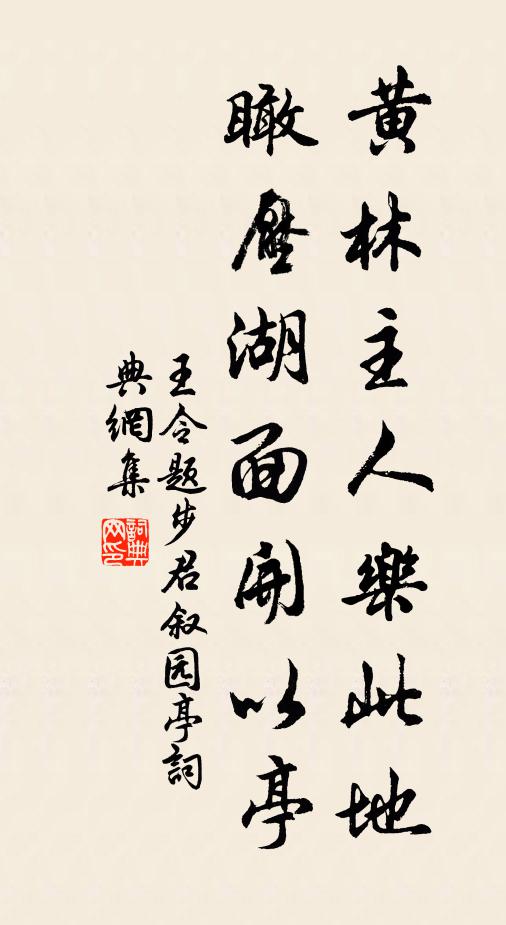 黄林主人樂此地
瞰壓湖面開以亭
王令题步君叙园亭詞
典網集
詞典网印